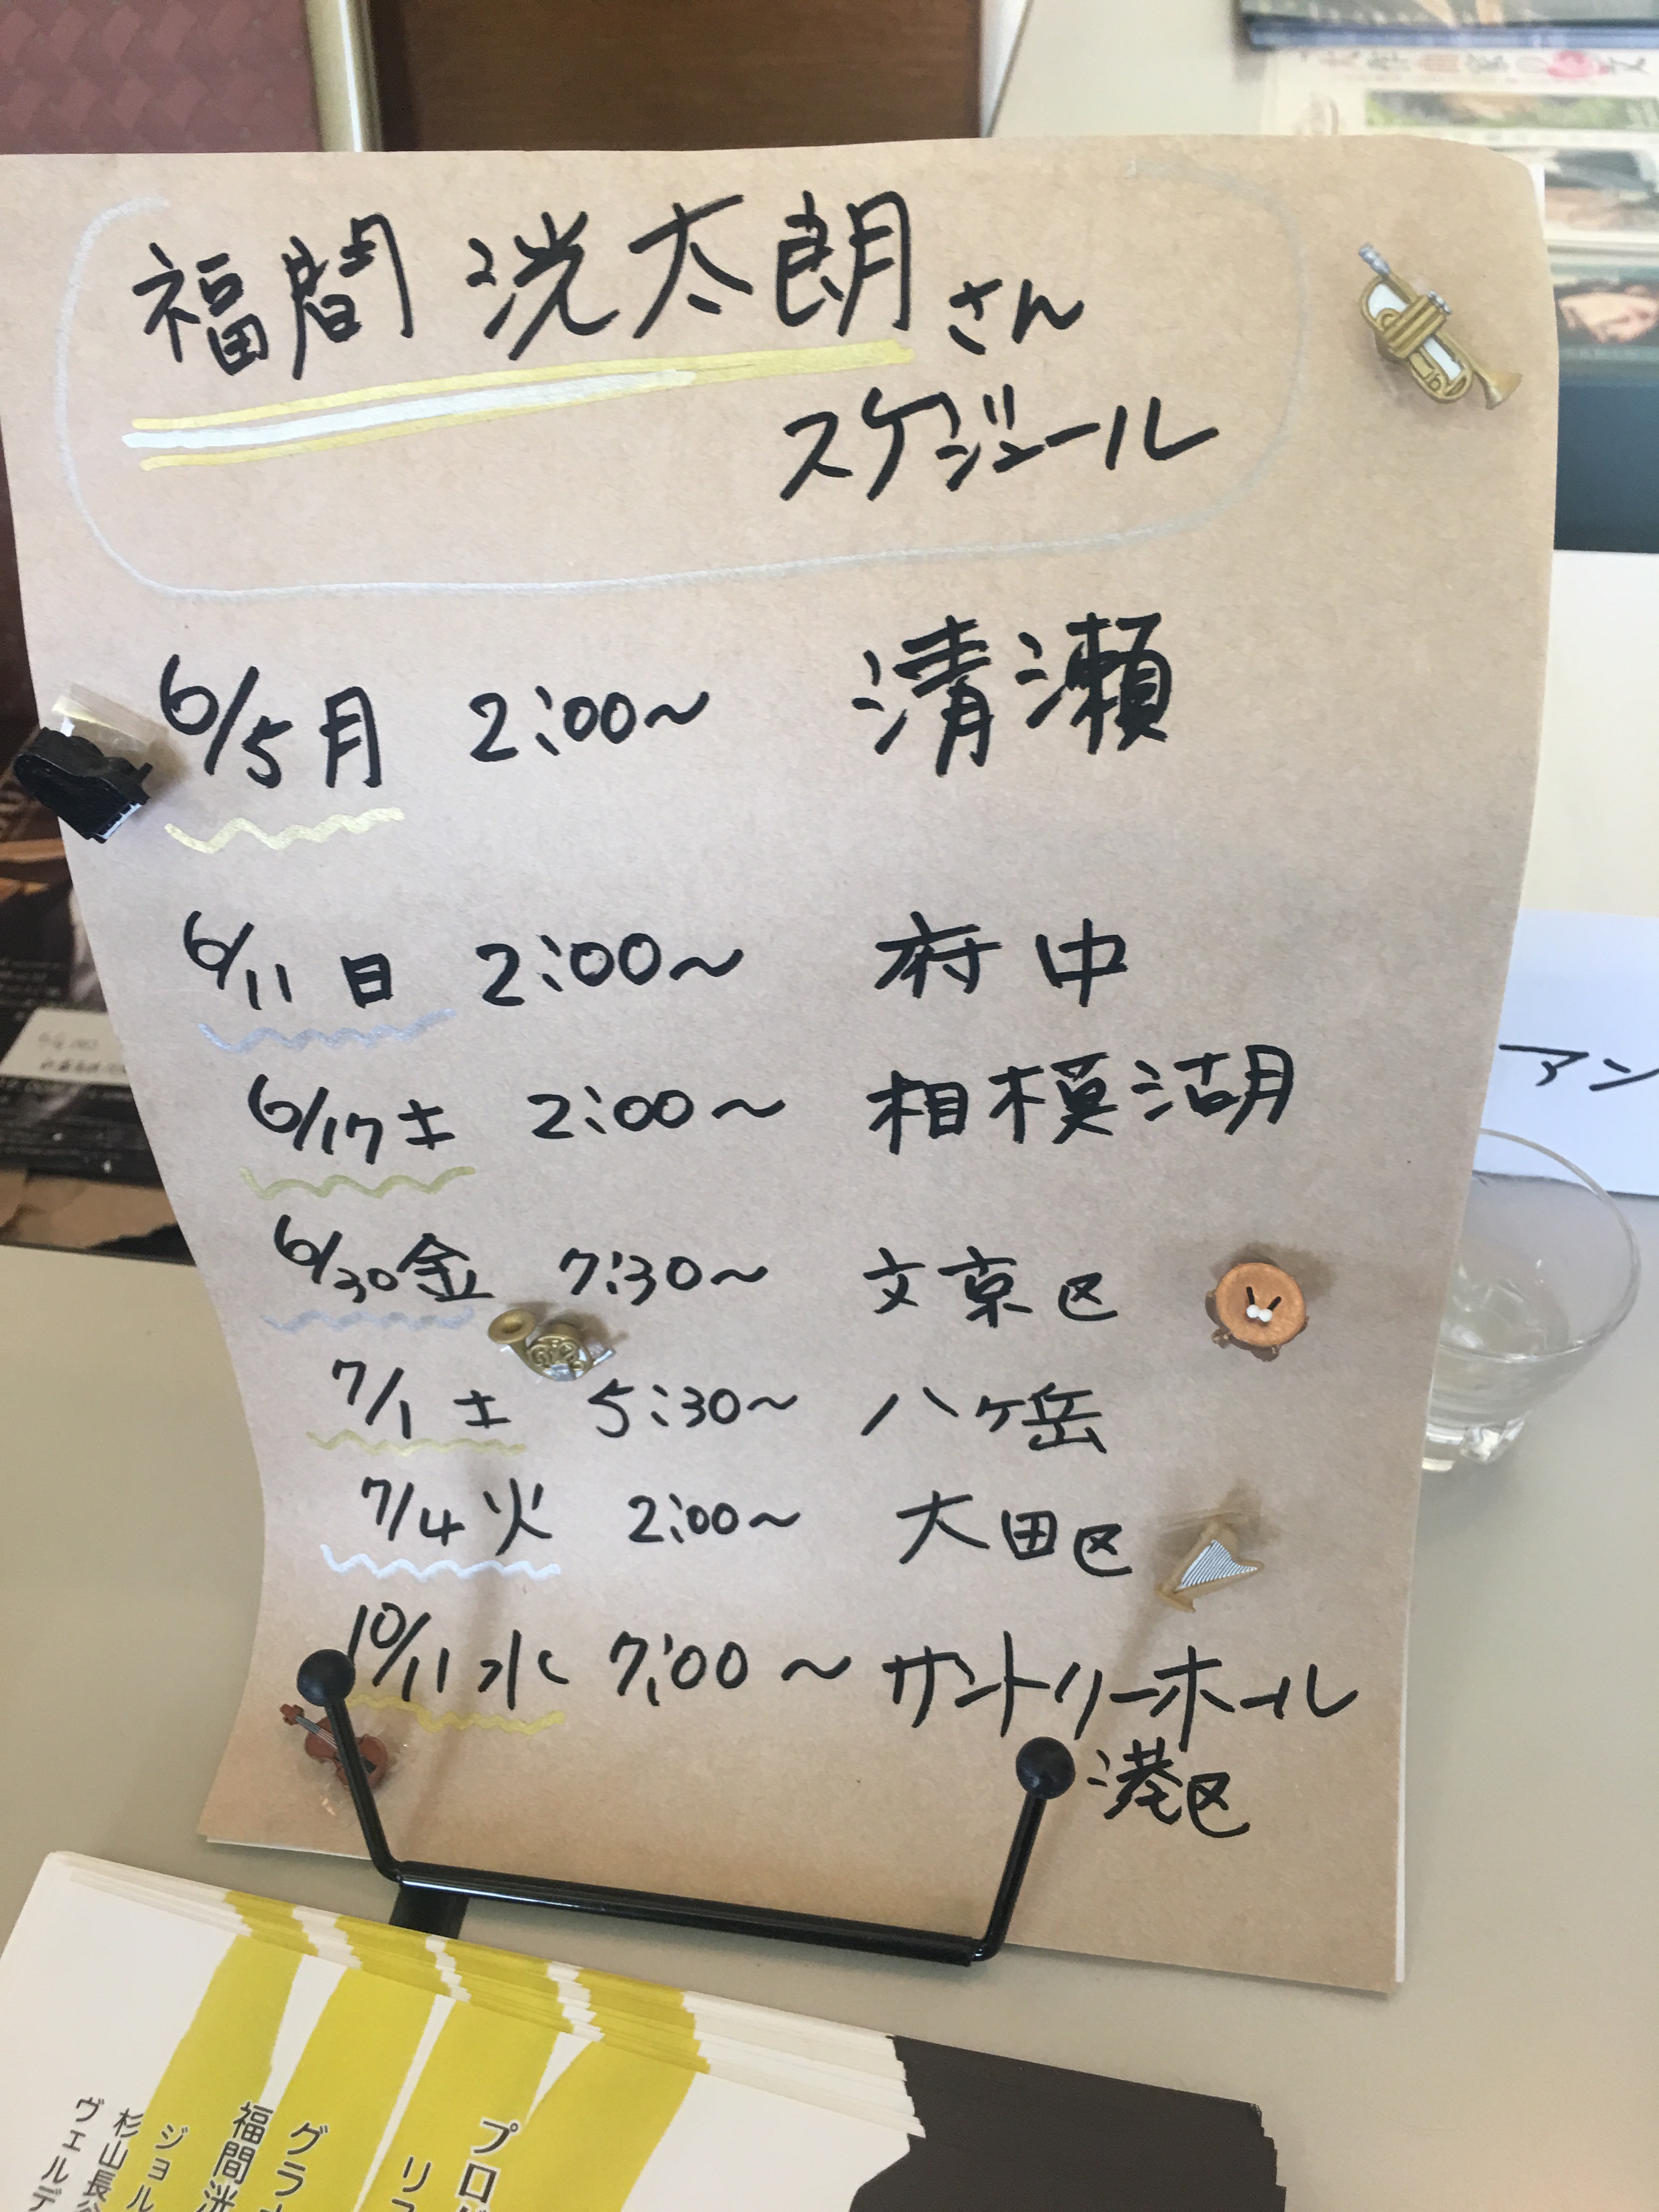 福間洸太朗さん
スケジュール
6/5月 2:00〜 清瀬
6/11日 2:00〜 府中
6/17土 2:00〜 相模湖
6/30金 7:30〜 文京区
7/1土 5:30〜 八ヶ岳
7/4火 2:00〜 大田区
10/11水 7:00〜 サントリーホール
港区
アン
プログ
リス
グラ
福間洸
ジョル
杉山長
ヴェルデ